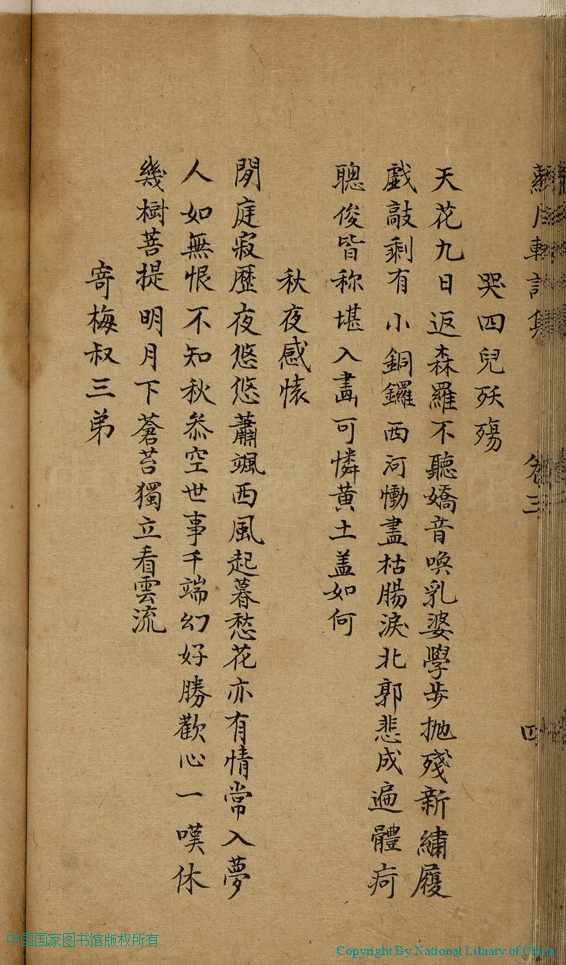 哭四兒殀殤
天花九日返森羅不聽嬌音喚乳婆學步抛殘新繡履
戲敲剩有小銅鑼西河慟盡枯腸淚北郭悲成遍體疴
聰俊皆称堪入畵可憐黄土盖如何
秋夜感懷
閒庭寂歷夜悠悠蕭颯西風起暮愁花亦有情常入夢
人如無恨不知秋叅空世事千端幻好勝歡心一嘆休
幾樹菩提明月下蒼苔獨立看雲流
寄梅叔三弟
卷三
四
中国国家图书馆版权所有
Copyright By National Library of China